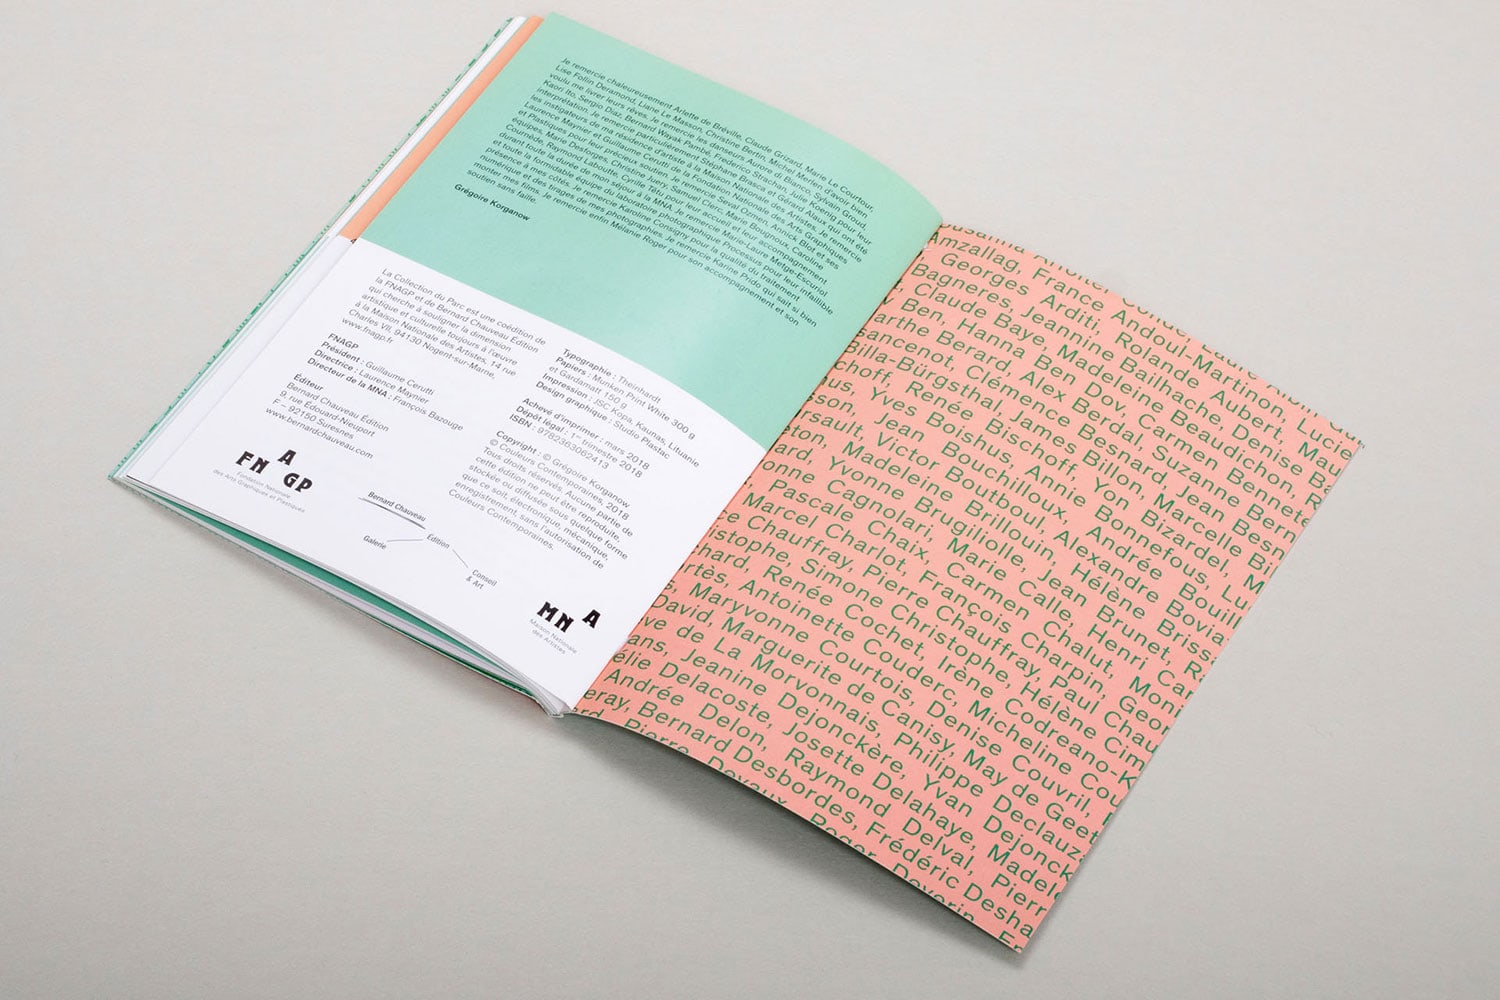 Je remercie chaleureusement Arlette de Bréville, Claude Grizard, Marie Le Courtour,
Lise Follin Deramond, Liane Le Masson, Christine Bertin, Michel Mullen d'avoir bien
voulu me livrer leurs rêves. Je remercie les danseurs Aurore di Bianco, Sylvain Groud,
Kaori Ito, Sergio Diaz, Bernard Wayak Pambé, Frederico Strachan, Julie Koenig pour leur
interprétation. Je remercie particulièrement Stéphane Brasca et Gérard Alaux qui ont été
les instigateurs de ma résidence d'artiste à la Maison Nationale des Artistes. Je remercie
Laurence Maynier et Guillaume Cerutti de la Fondation Nationale des Arts Graphiques
et Plastiques pour leur précieux soutien. Je remercie Seher Ozmen, Annick Blot et ses
équipes, Marie Desforges, Christine Juery, Samuel Clerc, Marie Bougnoux, Caroline
Cournède, Raymond Laboutte, Cyrille Têtu pour leur accueil et leur accompagnement
durant toute la durée de mon séjour à la MNA. Je remercie Marie-Laure Metge-Escuriol
et toute la formidable équipe du laboratoire photographique Processus pour leur infaillible
présence à mes côtés. Je remercie Karoline Consigny pour la qualité du traitement
numérique et des tirages de mes photographies. Je remercie Karine Prido qui sait si bien
monter mes films. Je remercie enfin Mélanie Roger pour son accompagnement et son
soutien sans faille.
Grégoire Korganow
La Collection du Parc est une coédition de
la FNAGP et de Bernard Chauveau Édition
qui cherche à souligner la dimension
artistique et culturelle toujours à l'œuvre
à la Maison Nationale des Artistes, 14 rue
Charles VII, 94130 Nogent-sur-Marne.
www.fnagp.fr
FNAGP
Président : Guillaume Cerutti
Directrice : Laurence Maynier
Directeur de la MNA : François Bazouge
Éditeur
Bernard Chauveau Édition
9, rue Édouard-Nieuport
F – 92150 Suresnes
www.bernardchauveau.com
Typographie : Theinhardt
Papiers : Munken Print White 300 g
et Gardamatt 150 g
Impression : JSC Kopa, Kaunas, Lituanie
Design graphique : Studio Plastac
Achevé d'imprimer : mars 2018
Dépôt légal : 1er trimestre 2018
ISBN : 9782363062413
Copyright : © Grégoire Korganow
© Couleurs Contemporaines, 2018
Tous droits réservés. Aucune partie de
cette édition ne peut être reproduite,
stockée ou diffusée sous quelque forme
que ce soit, électronique, mécanique,
enregistrement, sans l'autorisation de
Couleurs Contemporaines.
FNAGP
Fondation Nationale
des Arts Graphiques et Plastiques
Bernard Chauveau
Édition
Galerie
Conseil
& Art
MNA
Maison Nationale
des Artistes
Amzallag, France Andoul-Martinon,
Georges Arditi, Rolande Aubert, Lucie
Bagneres Jeannine Bailhache, Denise
Claude Baye, Madeleine Beaudichon,
Ben, Hanna Ben Dov, Carmen Bennet
Berard, Alex Berdal, Suzanne Bern
Clémence Besnard, Jean Besn
Billa-Bürgsthal, James Billon, Marcelle
Renée Bischoff, Yon Bizardel,
Yves Boishus, Annie Bonnefous,
Jean Bouchilloux, Andrée Bouil
Victor Boutboul, Alexandre Bovia
Madeleine Brillouin, Hélène Briss
Yvonne Brugiliolle, Jean Brunet,
Cagnolari, Marie Calle, Henri
Pascale Chaix, Carmen Chalut,
Marcel Charlot, François Charpin,
Chauffray, Pierre Chauffray, Paul
Simone Christophe, Hélène Cim
Renée Cochet, Irène Codreano-K
Antoinette Couderc, Micheline
Maryvonne Courtois, Denise Couvril,
David, Marguerite de Canisy, May de Geet
de La Morvonnais, Philippe Declauz
Jeanine Dejonckère, Yvan Dejonck
Delacoste, Josette Delahaye,
Andrée Delon, Raymond Delval, Pierr
Bernard Desbordes, Frédéric Desha